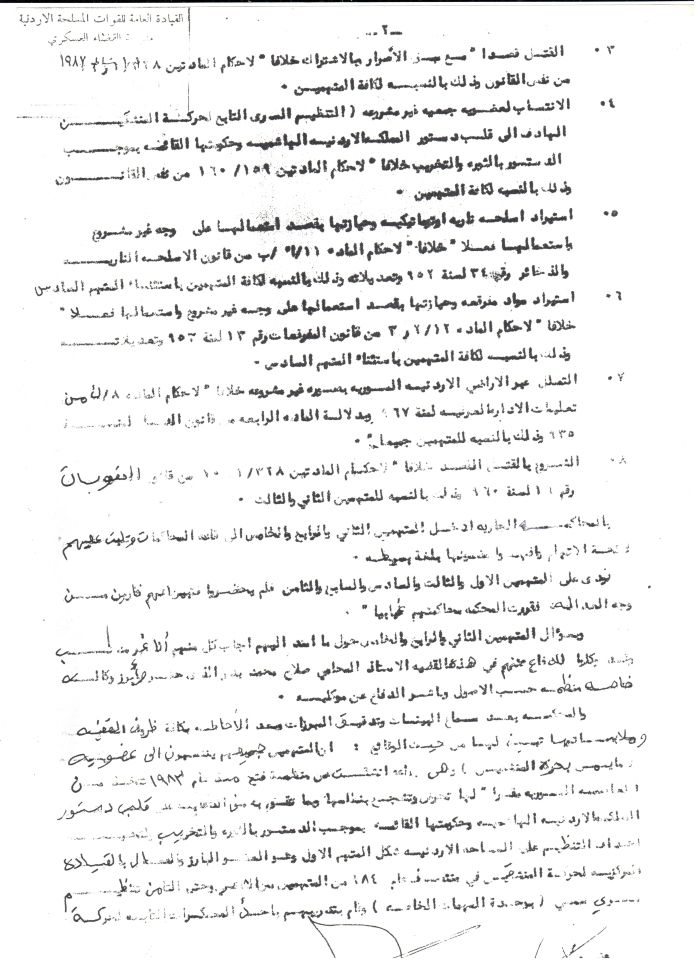 القيادة العامة للقوات المسلحة الاردنية
مديرية القضاء العسكري
-٢-
٣٠ القتل قصدا" مع سبق الأصرار بالاشتراك خلافا" لاحكام المادتين ٣٢٨/
من نفس القانون وذلك بالنسبه لكافة المتهمين ٠
٤٠ الانتساب لعضويه جمعيه غير مشروعه ( التنظيم السرى التابع لحركة المنشقين
الهادف الى قلب دستور المملكه الاردنيه الهاشميه وحكومتها القائمه بموجب
الدستور بالثوره والتخريب خلافا" لاحكام المادتين ١٥٩/ ١٦٠ من نفس القانون
وذلك بالنسبه لكافة المتهمين ٠
٥٠ استيراد اسلحه ناريه اوتوماتيكيه وحيازتها بقصد استعمالها على وجه غير مشروع
واستعمالها فعلا" خلافا" لاحكام الماده ١١/أ/ب من قانون الاسلحه الناريه
والذخائر رقم ٣٤ لسنة ٩٥٢ وتعديلاته وذلك بالنسبه لكافة المتهمين باستثناء المتهم السادس
٦٠ استيراد مواد مفرقعه وحيازتها بقصد استعمالها على وجه غير مشروع واستعمالها فعلا"
خلافا" لاحكام الماده ٢/١٢ و ٣ من قانون المفرقعات رقم ١٣ لسنة ٩٥٣ وتعديلاته
وذلك بالنسبه لكافة المتهمين باستثناء المتهم السادس ٠
٧٠ التسلل عبر الاراضي الاردنيه السوريه بصوره غير مشروعه خلافا" لاحكام الماده ٨/ من
تعليمات الاداره العرفيه لسنة ٩٦٧ وبدلالة الماده الرابعه من قانون الدفاع لسنة
٩٣٥ وذلك بالنسبه للمتهمين جميعا" ٠
٨٠ الشروع بالقتل القصد خلافا" لاحكام المادتين ١/٣٢٨ من قانون العقوبات
رقم ١٦ لسنة ٩٦٠ وذلك بالنسبه للمتهمين الثاني والثالث ٠
بالمحاكمه الجاريه ادخل المتهمين الثاني والرابع والخامس الى قاعة المحاكمات وتليت عليهم
لائحة الاتهام وافهموا مضمونها بلغة بسيطه ٠
نودى على المتهمين الاول والثالث والسادس والسابع والثامن فلم يحضروا فارين من
وجه العداله فقررت المحكمه محاكمتهم غيابيا" ٠
وبسؤال المتهمين الثاني والرابع والخامس حول ما اسند اليهم اجاب كل منهم أنا غير مذنب
وكلوا للدفاع عنهم في هذه القضيه الاستاذ المحامي صلاح محمد الذى حضر وأبرز وكاله
خاصه منظمه حسب الاصول وباشر الدفاع عن موكليه ٠
والمحكمه بعد سماع البينات وتدقيق المبرزات وبعد الأحاطه بكافة ظروف القضيه
وملابساتها تبين لها من حيث الوقائع : ان المتهمين جميعهم ينتمون الى عضوية
( ما يسمى بحركة المنشقين ) وهي انشقت عن منظمة فتح منذ عام ١٩٨٣ تتخذ من
العاصمه السوريه مقرا" لها قلب دستور
المملكه الاردنيه الهاشميه وحكومتها القائمه بموجب الدستور بالثوره والتخريب
التنظيم على الساحه الاردنيه شكل المتهم الاول وهو العضو البارز بالقياده
المركزيه لحركة المنشقين في منتصف عام ٩٨٤ من المتهمين من الثاني وحتى الثامن تنظيم
سرى سمي ( بوحدة المهمات الخاصه ) وقام بتدريبهم باحدى المعسكرات التابعه لحركة